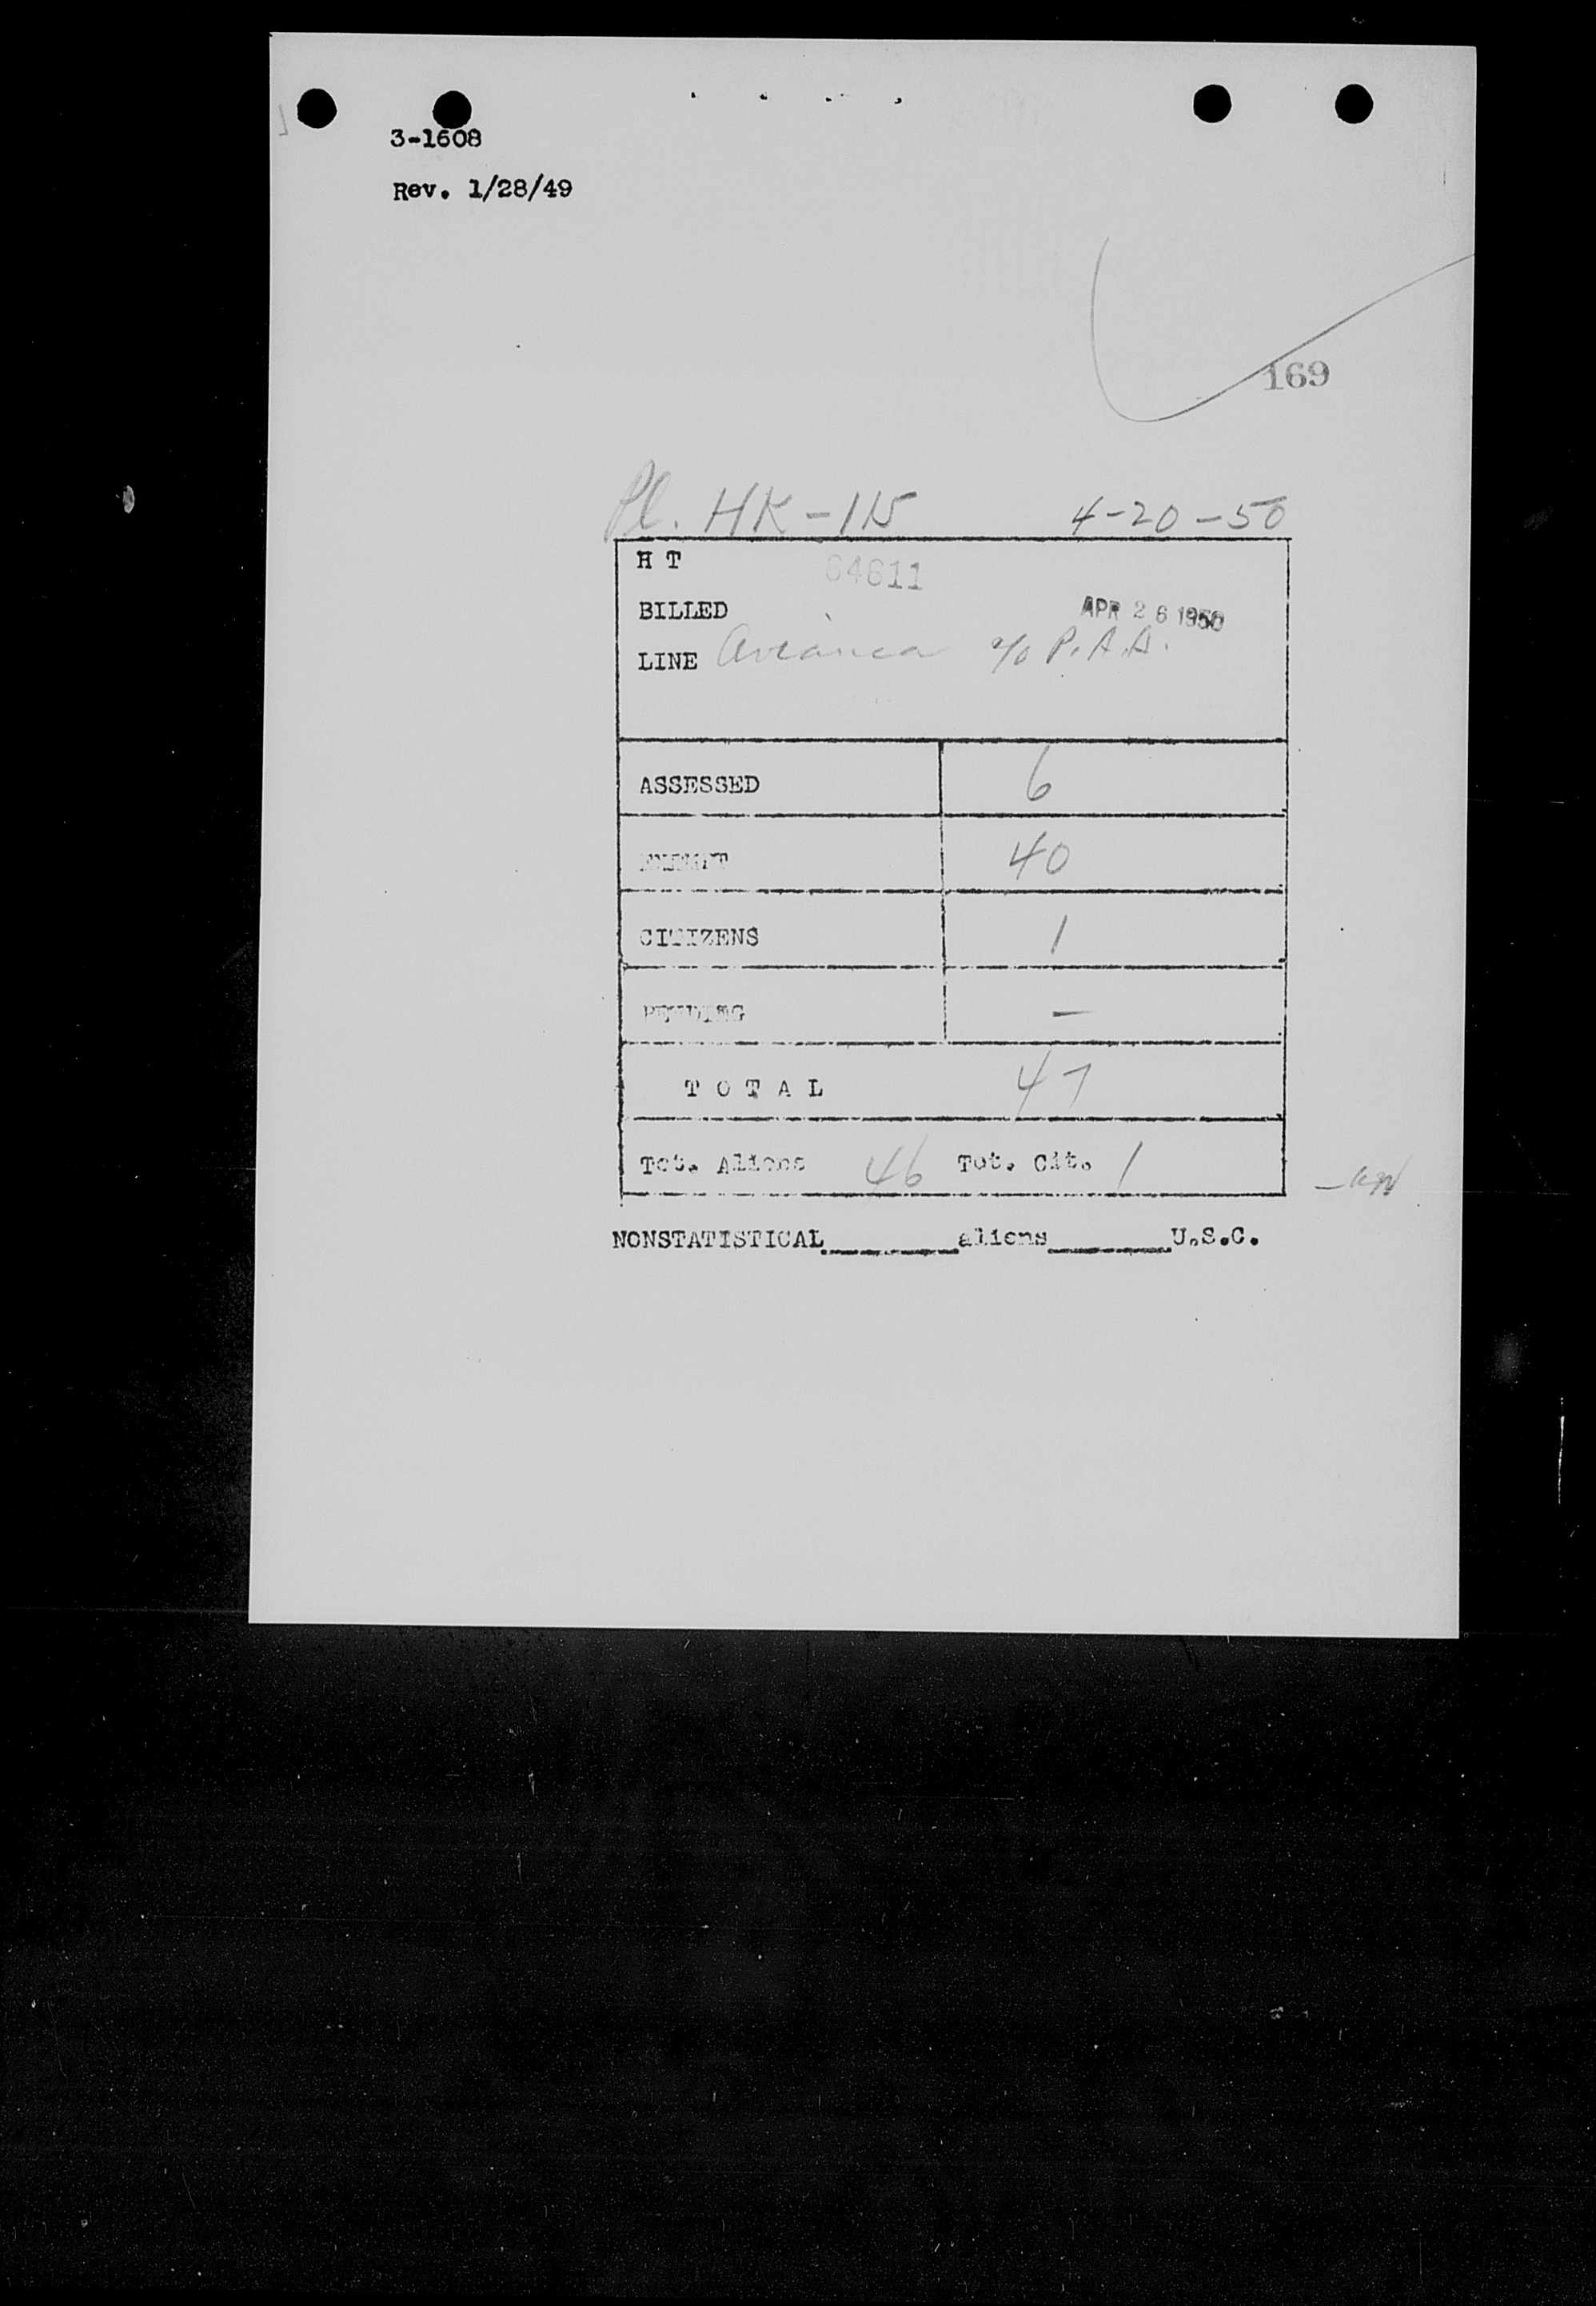 3-1608
Rev. 1/28/49
169
Pl. HK-115 4-20-50
H T 64611
BILLED APR 26 1950
LINE Avianca c/o P.A.A.
ASSESSED 6
EXEMPT 40
CITIZENS 1
PENDING —
T O T A L 47
Tot. Aliens 46 Tot. Cit. 1
NONSTATISTICAL______aliens______U.S.C.